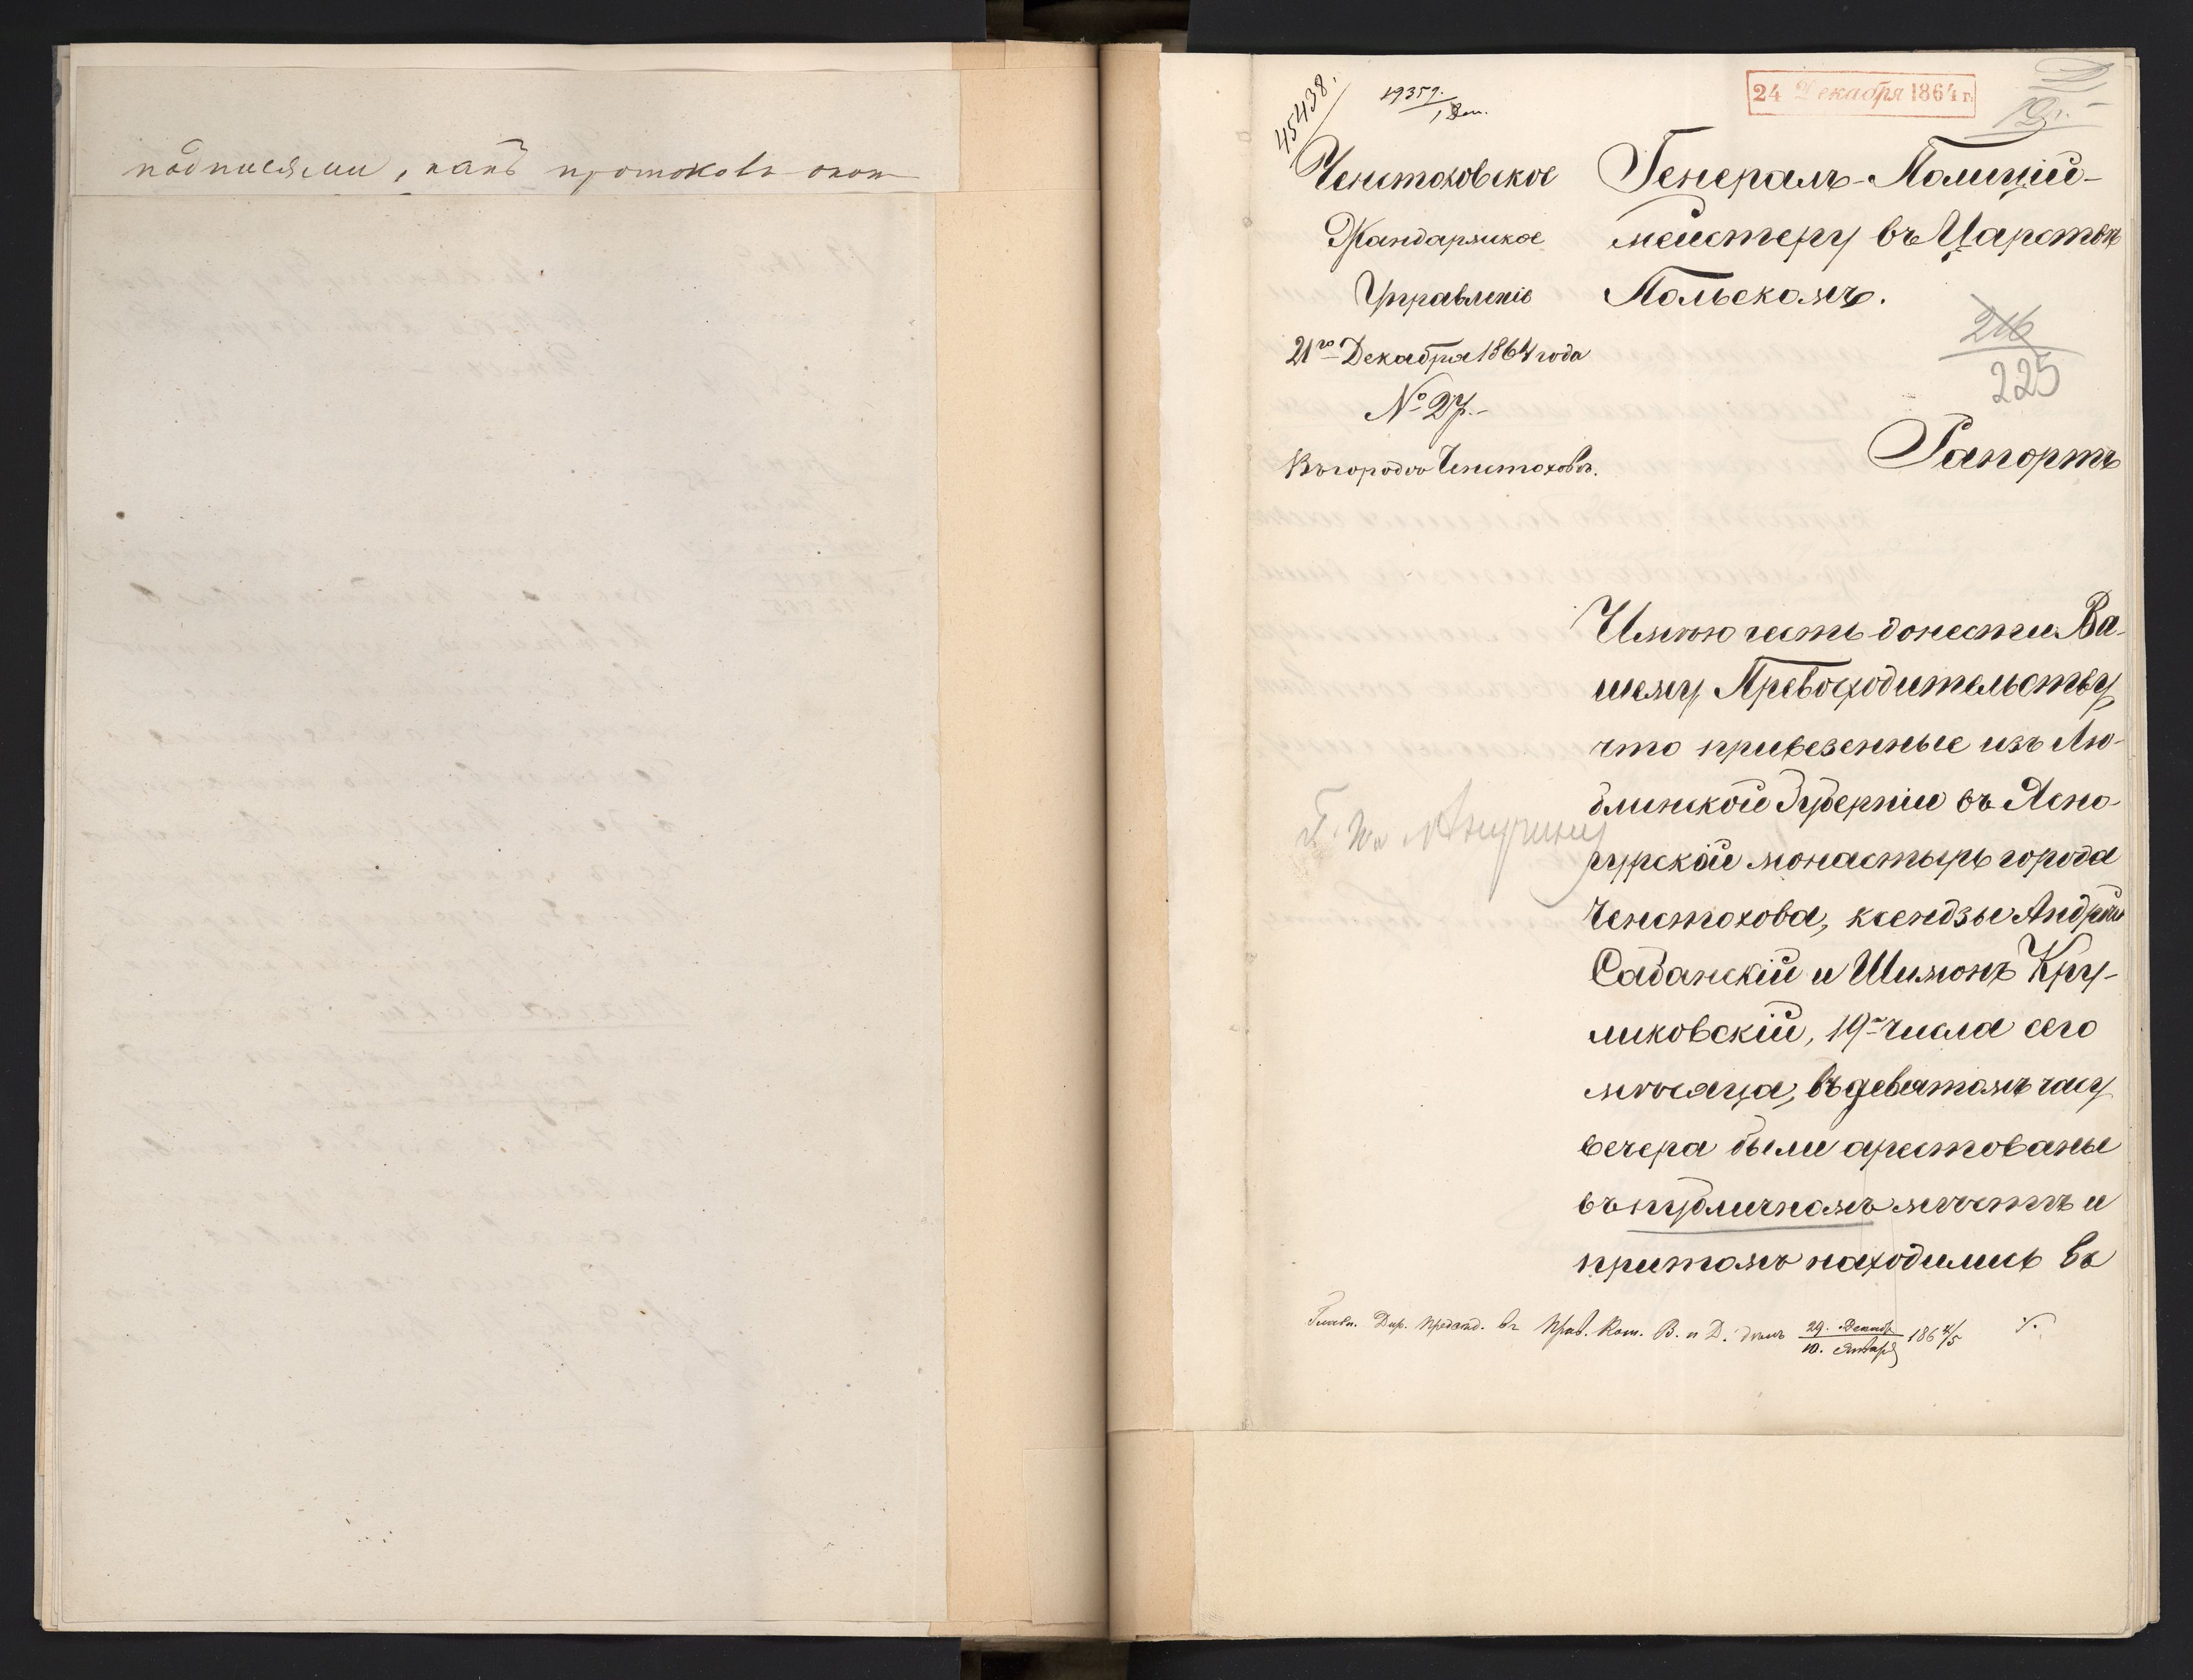 подписями, какъ протоколъ окон
45438.
19359.
24 Декабря 1864 г.
Ченстоховское
Жандармское
Управленіе
21го Декабря 1864 года
№ 27.-
Въ городѣ Ченстоховѣ.
Генералъ-Полиціи-
мейстеру въ Царствѣ
Польскомъ.
216
225
Рапортъ
Имѣю честь донести Ва-
шему Превосходительству,
что привезенные изъ Лю-
блинской Губерніи въ Ясно-
гурскій монастырь города
Ченстохова, ксендзы Андрей
Сабанскій и Шимонъ Кру-
ликовскій, 19го числа сего
мѣсяца, въ девятомъ часу
вечера были арестованы
въ публичномъ мѣстѣ и
притомъ находились въ
Главн. Дир. Предсѣд. въ Прав. Ком. В. и Д. дѣлъ 29. Декабр 10. Января 1864/5